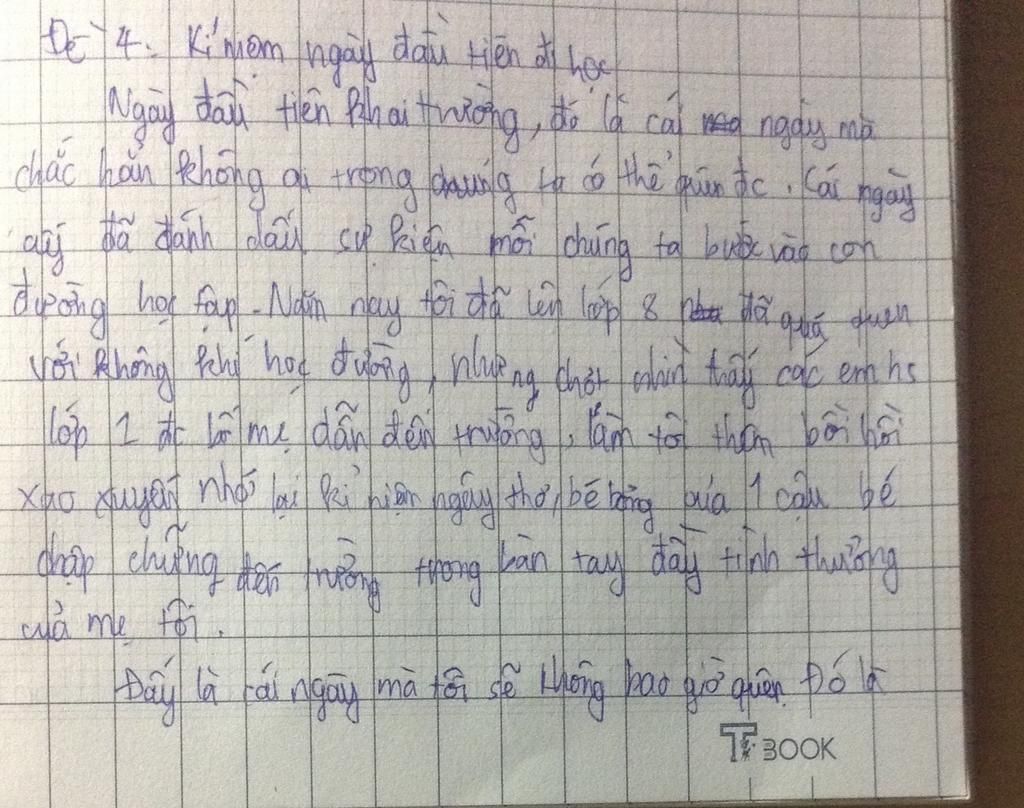 Đề 4: Kỉ niệm ngày đầu tiên đi học
Ngày đầu tiên khai trường, đó là cái ngày mà
chắc hẳn không ai trong chúng ta có thể quên đc. Cái ngày
ấy đã đánh dấu sự kiện mỗi chúng ta bước vào con
đường học tập. Năm nay tôi đã lên lớp 8 đã quá quen
với không khí học đường, nhưng chợt nhìn thấy các em hs
lớp 1 đc bố mẹ dẫn đến trường, làm tôi thầm bồi hồi
xao xuyến nhớ lại kỉ niệm ngây thơ, bé bỏng của 1 cậu bé
chập chững đến trường trong bàn tay đầy tình thương
của mẹ tôi.
Đấy là cái ngày mà tôi sẽ không bao giờ quên. Đó là
TB BOOK